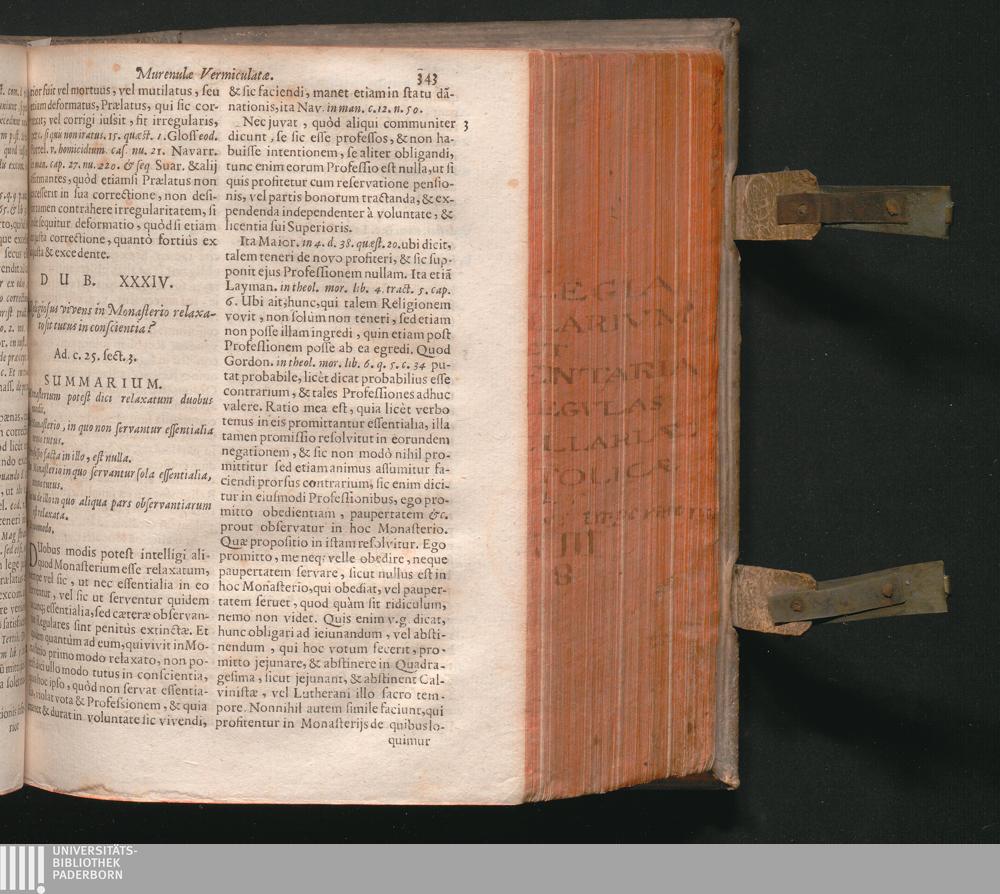 Murenulæ Vermiculatæ.
343
fuit vel mortuus, vel mutilatus, seu
deformatus, Prælatus, qui sic cor-
vel corrigi iussit, fit irregularis,
si quis non iratus. 15. quæst. 1. Gloss eod.
v. homicidium. cas. nu. 21. Navarr.
man. cap. 27. nu. 220. & seq. Suar. & alij
quòd etiamsi Prælatus non
in sua correctione, non desi-
contrahere irregularitatem, si
sequitur deformatio, quòd si etiam
correctione, quantò fortiùs ex
& excedente.
DUB. XXXIV.
vivens in Monasterio relaxa-
to sit tutus in conscientia?
Ad. c. 25. sect. 3.
SUMMARIUM.
potest dici relaxatum duobus
modis.
in quo non servantur essentialia
tutus.
facta in illo, est nulla.
in quo servantur sola essentialia,
tutus.
de illo in quo aliqua pars observantiarum
relaxata.
DUobus modis potest intelligi ali-
quod Monasterium esse relaxatum,
vel sic, ut nec essentialia in eo
vel sic ut serventur quidem
essentialia, sed cæteræ observan-
Regulares sint penitùs extinctæ. Et
quantùm ad eum, qui vivit in Mo-
primo modo relaxato, non po-
ullo modo tutus in conscientia,
hoc ipso, quòd non servat essentia-
violat vota & Professionem, & quia
& durat in voluntate sic vivendi,
& sic faciendi, manet etiam in statu dā-
nationis, ita Nav. in man. c. 12. n. 50.
Nec juvat, quòd aliqui communiter 3
dicunt, se sic esse professos, & non ha-
buisse intentionem, se aliter obligandi,
tunc enim eorum Professio est nulla, ut si
quis profitetur cum reservatione pensio-
nis, vel partis bonorum tractanda, & ex-
pendenda independenter à voluntate, &
licentia sui Superioris.
Ita Maior. in 4. d. 38. quæst. 20. ubi dicit,
talem teneri de novo profiteri, & sic sup-
ponit ejus Professionem nullam. Ita etiā
Layman. in theol. mor. lib. 4. tract. 5. cap.
6. Ubi ait; hunc, qui talem Religionem
vovit, non solùm non teneri, sed etiam
non posse illam ingredi, quin etiam post
Professionem posse ab ea egredi. Quod
Gordon. in theol. mor. lib. 6. q. 5. c. 34 pu-
tat probabile, licèt dicat probabilius esse
contrarium, & tales Professiones adhuc
valere. Ratio mea est, quia licèt verbo
tenus in eis promittantur essentialia, illa
tamen promissio resolvitur in eorundem
negationem, & sic non modò nihil pro-
mittitur sed etiam animus assumitur fa-
ciendi prorsus contrarium, sic enim dici-
tur in eiusmodi Professionibus, ego pro-
mitto obedientiam, paupertatem &c.
prout observatur in hoc Monasterio.
Quæ propositio in istam resolvitur. Ego
promitto, me neq; velle obedire, neque
paupertatem servare, sicut nullus est in
hoc Monasterio, qui obediat, vel pauper-
tatem servet, quod quàm sit ridiculum,
nemo non videt. Quis enim v.g. dicat,
hunc obligari ad ieiunandum, vel absti-
nendum, qui hoc votum fecerit, pro-
mitto jejunare, & abstinere in Quadra-
gesima, sicut jejunant, & abstinent Cal-
vinistæ, vel Lutherani illo sacro tem-
pore. Nonnihil autem simile faciunt, qui
profitentur in Monasterijs de quibus lo-
quimur
UNIVERSITÄTS-
BIBLIOTHEK
PADERBORN